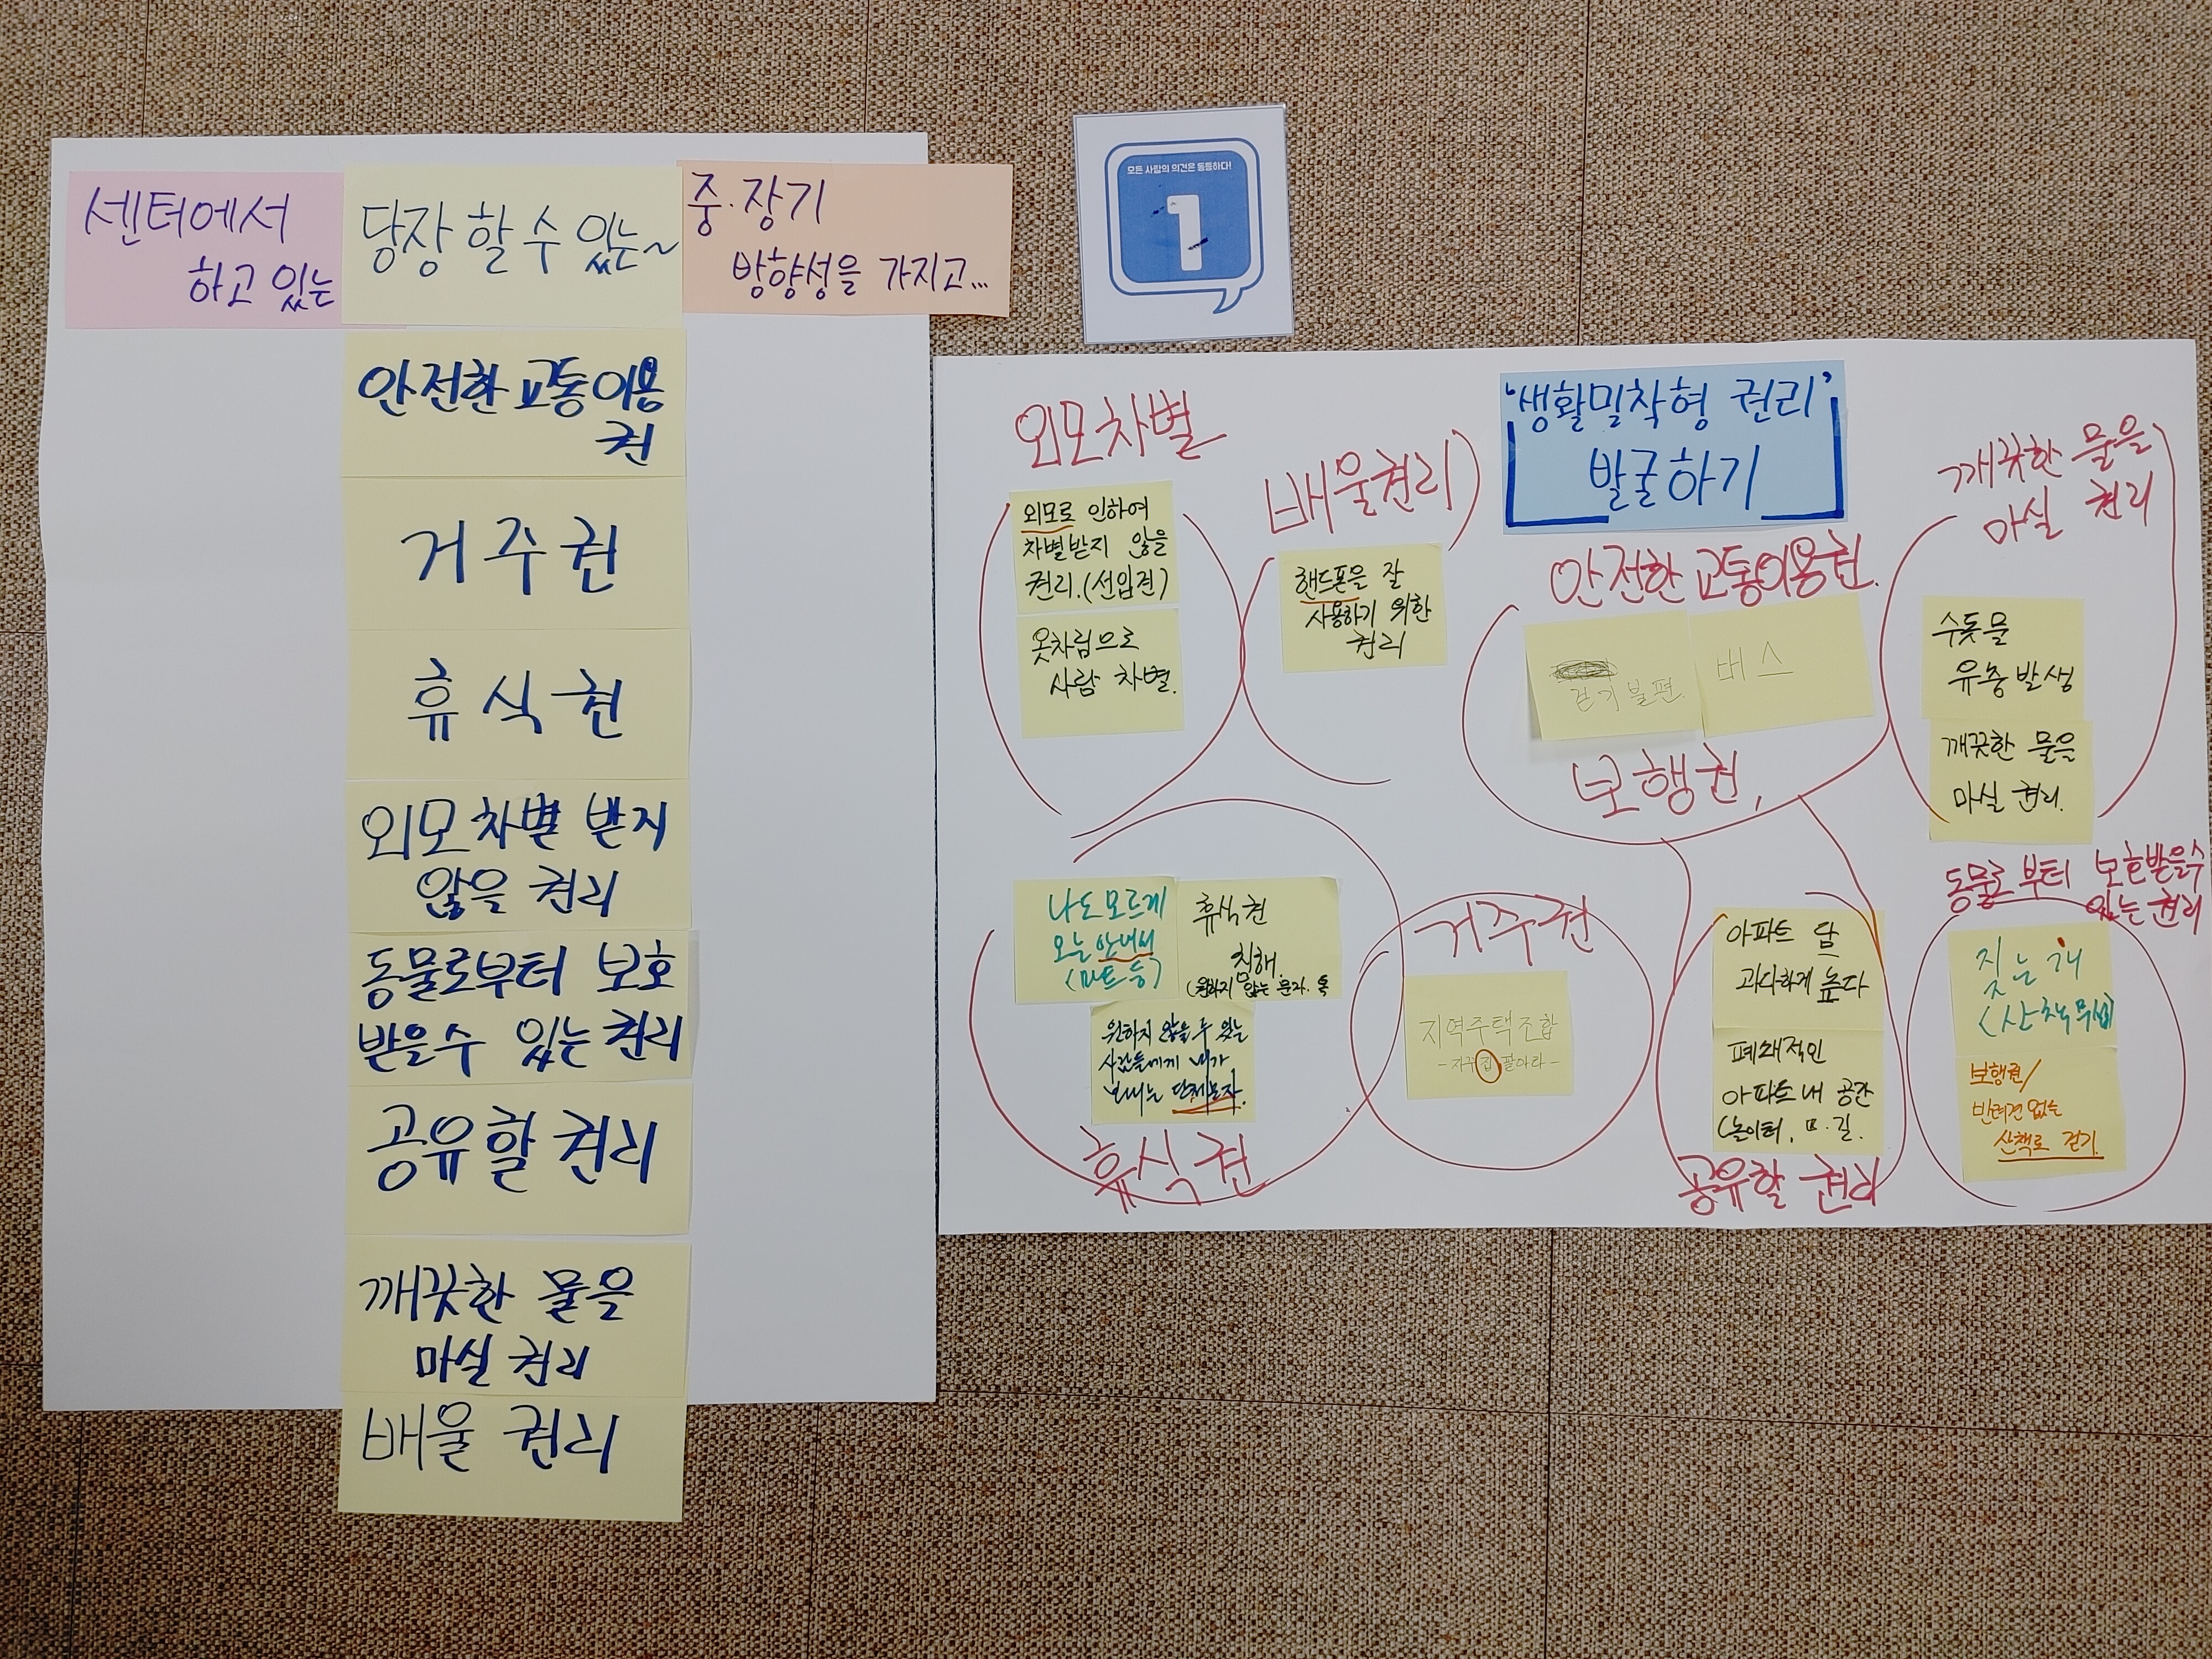 센터에서
하고 있는
당장 할 수 있는~
중·장기
방향성을 가지고...
안전한 교통이용
권
거주권
휴식권
외모 차별 받지
않을 권리
동물로부터 보호
받을수 있는 권리
공유할 권리
깨끗한 물을
마실 권리
배울 권리
모든 사람의 의견은 동등하다!
1
'생활밀착형 권리'
발굴하기
외모차별
외모로 인하여
차별받지 않을
권리.(선입견)
옷차림으로
사람 차별.
배울권리
핸드폰을 잘
사용하기 위한
권리
안전한 교통이용권.
걷기 불편
버스
보행권,
깨끗한 물을
마실 권리
수돗물
유충발생
깨끗한 물을
마실 권리.
나도 모르게
오는 안내서
(마트 등)
휴식권
침해.
(원하지 않는 문자. 톡
원하지 않을 수 있는
사람들에게 내가
보내는 단체문자.
휴식권
거주권
지역주택조합
- 자꾸 집 팔아라 -
아파트 담
과다하게 높다
폐쇄적인
아파트 내 공간
(놀이터, 길.
공유할 권리
동물로부터 보호받을수
있는 권리
짖는 개
보행권/
반려견 없는
산책로 걷기.